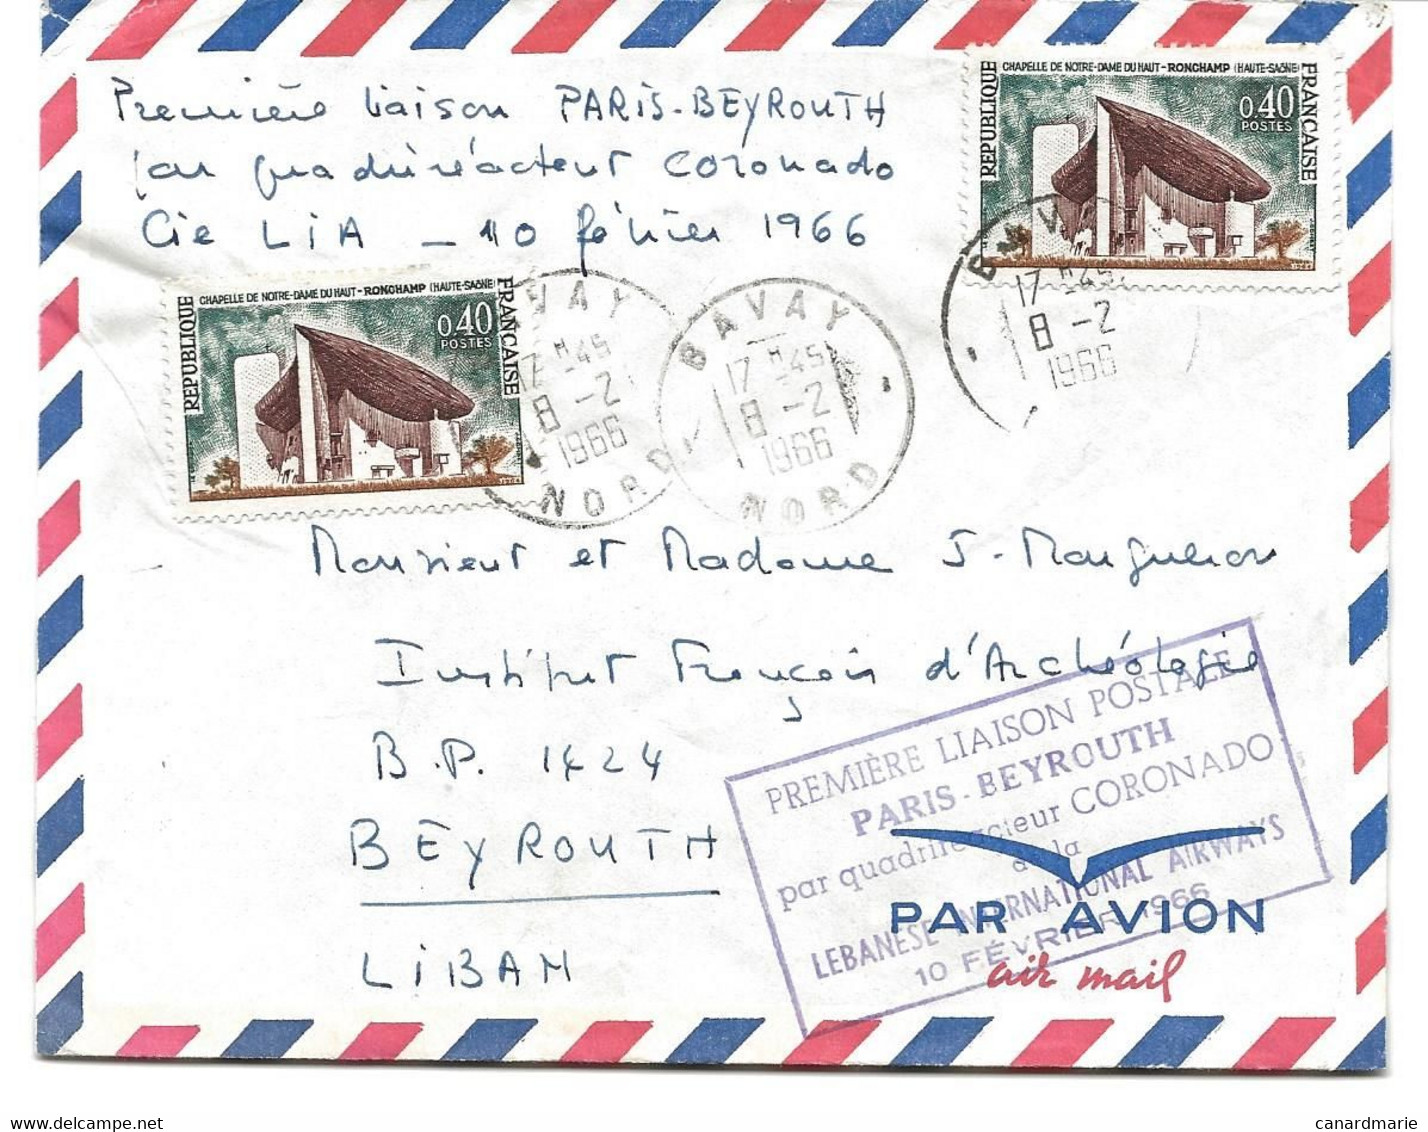 Première liaison PARIS-BEYROUTH
par quadriréacteur Coronado
Cie LIA - 10 février 1966
CHAPELLE DE NOTRE-DAME DU HAUT-RONCHAMP (HAUTE-SAÔNE)
REPUBLIQUE FRANÇAISE
0,40
POSTES
CHAPELLE DE NOTRE-DAME DU HAUT-RONCHAMP (HAUTE-SAÔNE)
REPUBLIQUE FRANÇAISE
0,40
POSTES
1964
AVAY
17 H 45
8 - 2
1966
NORD
BAVAY
17 H 45
8 - 2
1966
NORD
BAV
17 H 45
8 - 2
1966
Monsieur et Madame J. Margueron
Institut Français d'Archéologie
B.P. 1424
BEYROUTH
LIBAN
PREMIÈRE LIAISON POSTALE
PARIS-BEYROUTH
par quadriréacteur CORONADO
de la
LEBANESE INTERNATIONAL AIRWAYS
10 FÉVRIER 1966
PAR AVION
air mail
canardmarie